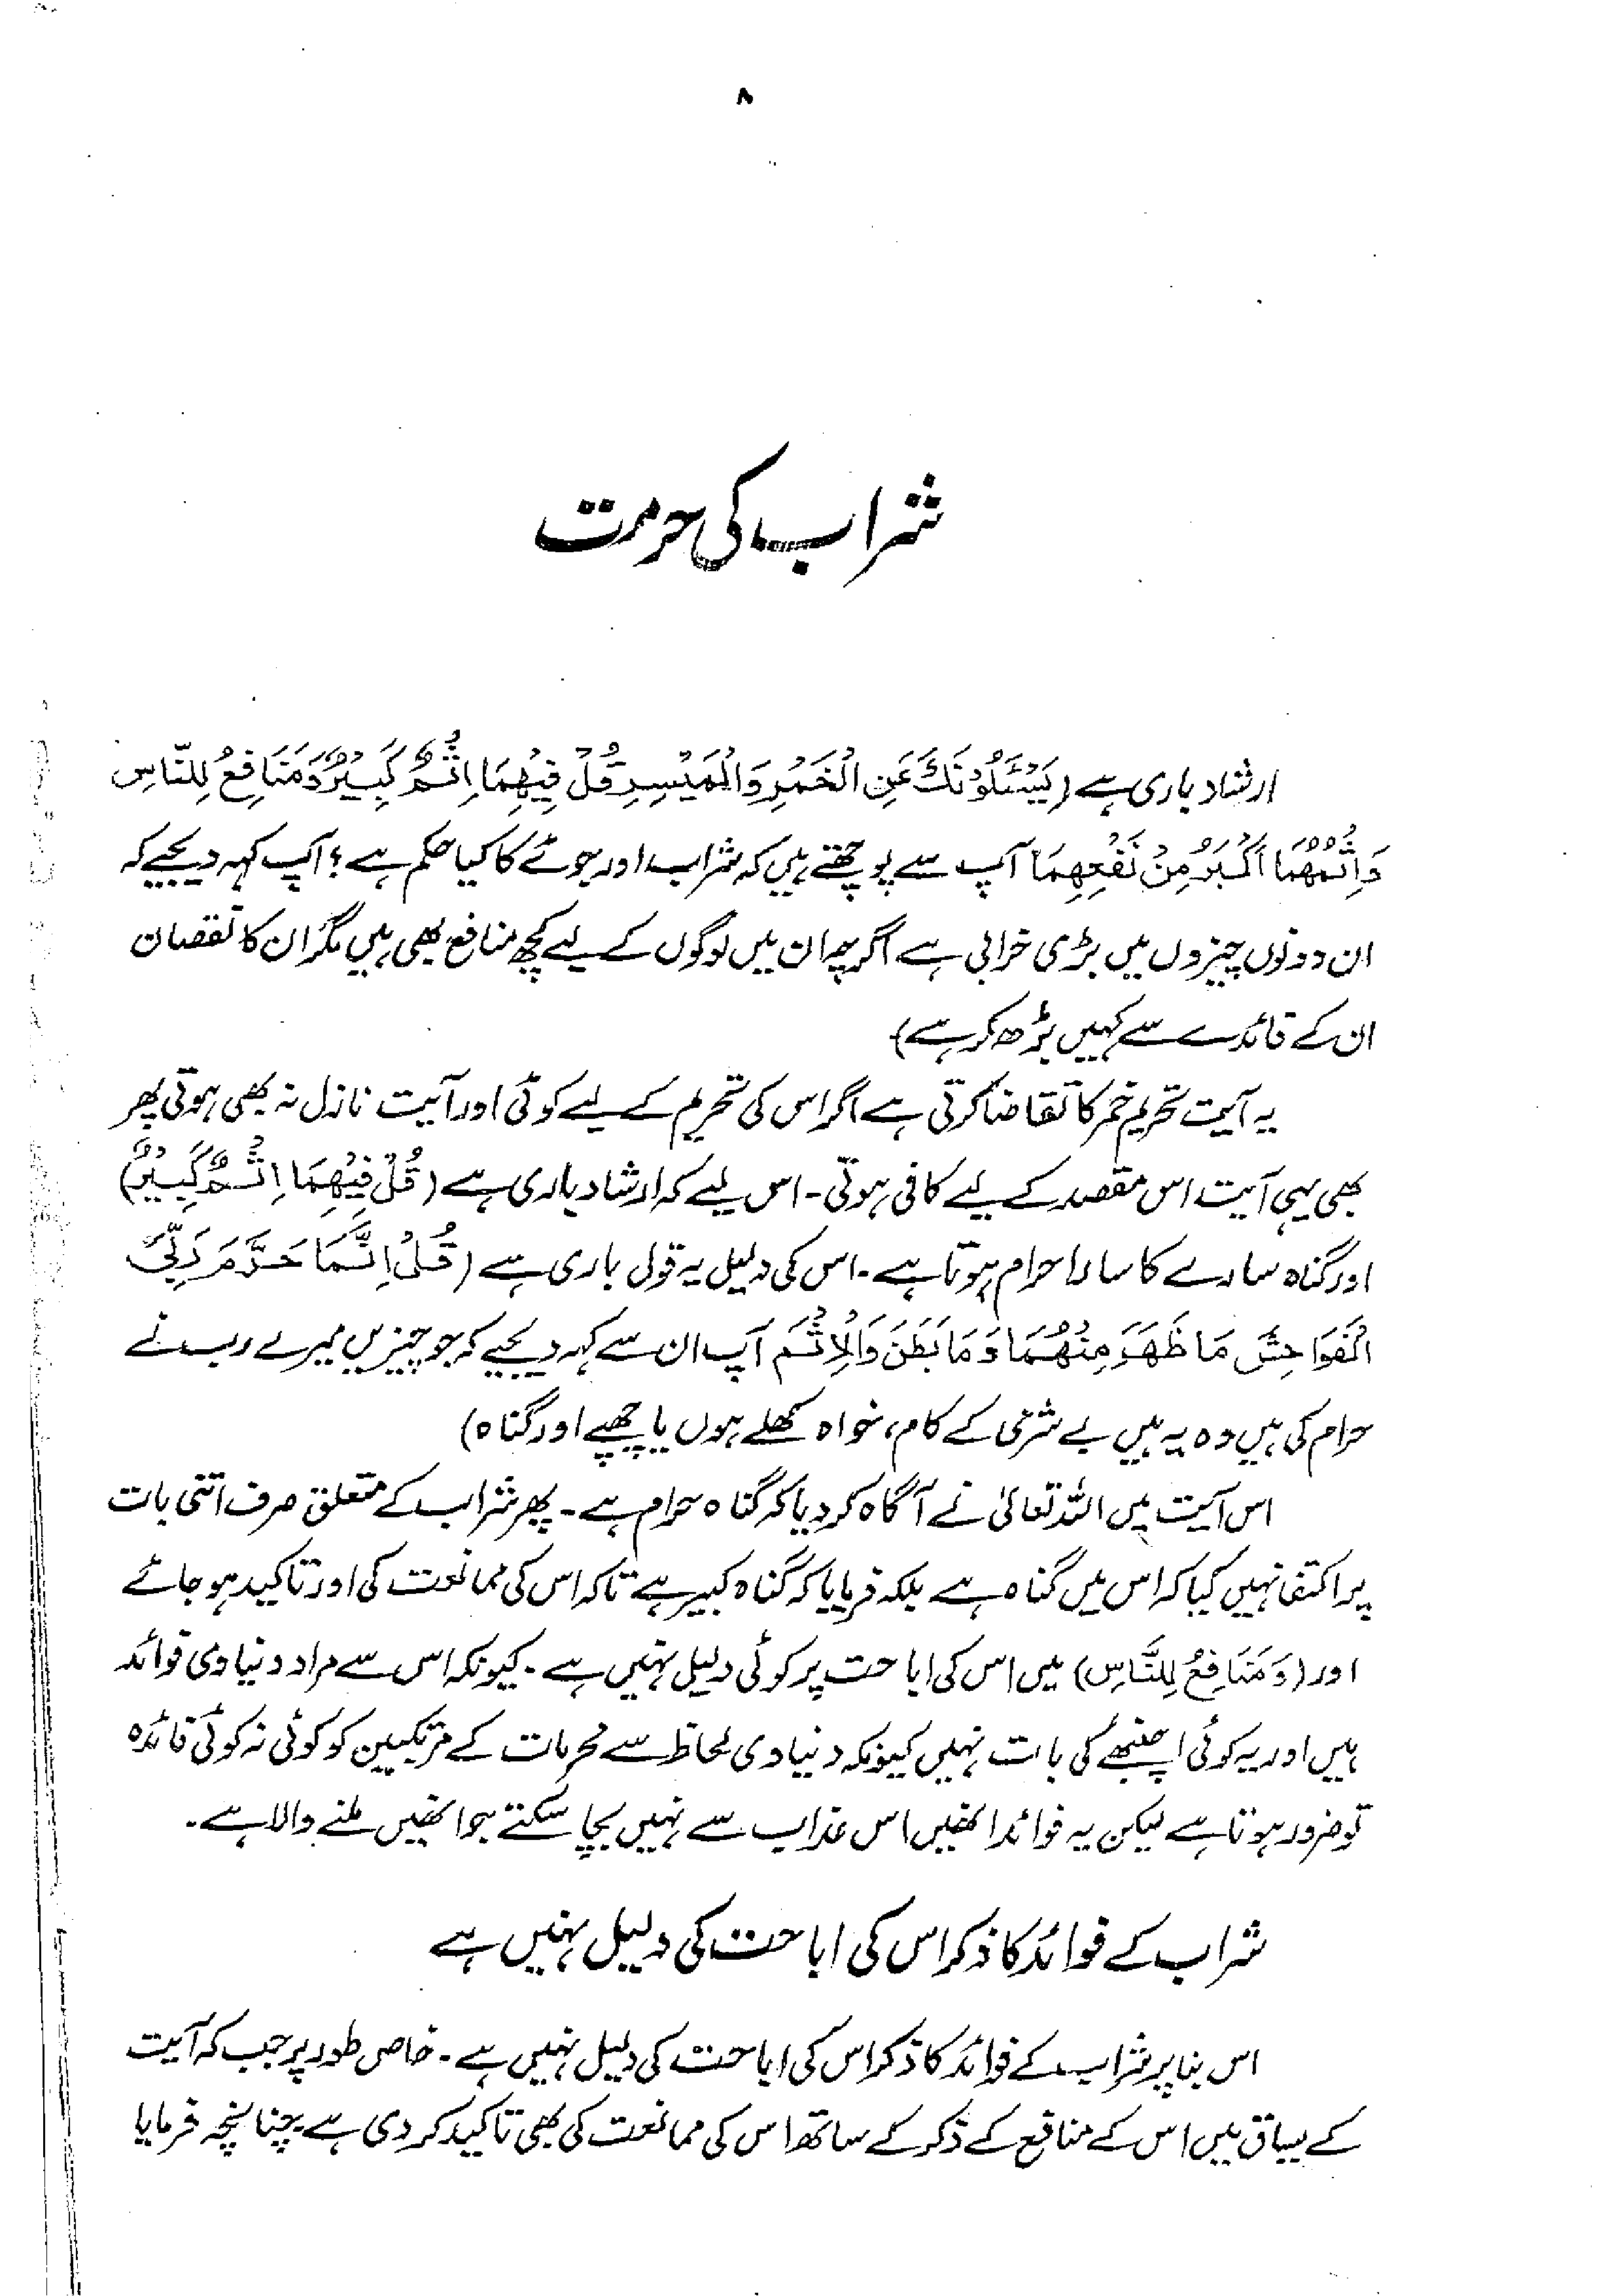 ۸
شراب کی حرمت
ارشاد باری ہے (يَسْئَلُوْنَكَ عَنِ الْخَمْرِ وَالْمَيْسِرِ قُلْ فِيْهِمَا اِثْمٌ كَبِيْرٌ وَّمَنَافِعُ لِلنَّاسِ
وَاِثْمُهُمَا اَكْبَرُ مِنْ نَّفْعِهِمَا آپ سے پوچھتے ہیں کہ شراب اور جوئے کا کیا حکم ہے؟ آپ کہہ دیجیے کہ
ان دونوں چیزوں میں بڑی خرابی ہے اگرچہ ان میں لوگوں کے لیے کچھ منافع بھی ہیں مگر ان کا نقصان
ان کے فائدے سے کہیں بڑھ کر ہے)
یہ آیت تحریم خمر کا تقاضا کرتی ہے اگر اس کی تحریم کے لیے کوئی اور آیت نازل نہ بھی ہوتی پھر
بھی یہی آیت اس مقصد کے لیے کافی ہوتی۔ اس لیے کہ ارشاد باری ہے (قُلْ فِيْهِمَا اِثْمٌ كَبِيْرٌ)
اور گناہ سارے کا سارا حرام ہوتا ہے۔ اس کی دلیل یہ قول باری ہے (قُلْ اِنَّمَا حَرَّمَ رَبِّيَ
الْفَوَاحِشَ مَا ظَهَرَ مِنْهُمَا وَمَا بَطَنَ وَالْاِثْمَ آپ ان سے کہہ دیجیے کہ جو چیزیں میرے رب نے
حرام کی ہیں وہ یہ ہیں بے شرمی کے کام، خواہ کھلے ہوں یا چھپے اور گناہ)
اس آیت میں اللہ تعالیٰ نے آگاہ کر دیا کہ گناہ حرام ہے۔ پھر شراب کے متعلق صرف اتنی بات
پر اکتفا نہیں کیا کہ اس میں گناہ ہے بلکہ فرمایا کہ گناہ کبیر ہے تاکہ اس کی ممانعت کی اور تاکید ہو جائے
اور (وَمَنَافِعُ لِلنَّاسِ) میں اس کی اباحت پر کوئی دلیل نہیں ہے۔ کیونکہ اس سے مراد دنیاوی فوائد
ہیں اور یہ کوئی اچنبھے کی بات نہیں کیونکہ دنیاوی لحاظ سے محرمات کے مرتکبین کو کوئی نہ کوئی فائدہ
تو ضرور ہوتا ہے لیکن یہ فوائد انھیں اس عذاب سے نہیں بچا سکتے جو انھیں ملنے والا ہے۔
شراب کے فوائد کا ذکر اس کی اباحت کی دلیل نہیں ہے
اس بنا پر شراب کے فوائد کا ذکر اس کی اباحت کی دلیل نہیں ہے۔ خاص طور پر جب کہ آیت
کے سیاق میں اس کے منافع کے ذکر کے ساتھ اس کی ممانعت کی بھی تاکید کر دی ہے چنانچہ فرمایا